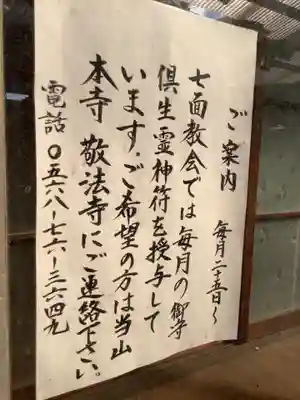 ご案内
毎月二十五日〜
七面教会では毎月の御守
倶生霊神符を授与して
います。ご希望の方は当山
本寺 敬法寺にご連絡下さい。
電話 〇五六八ー七六ー三六四九